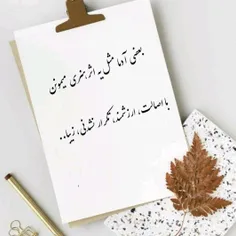 بعضی آدما مثل یه اثر هنری میمونن
با اصالت، ارزشمند، تکرار نشدنی، زیبا..